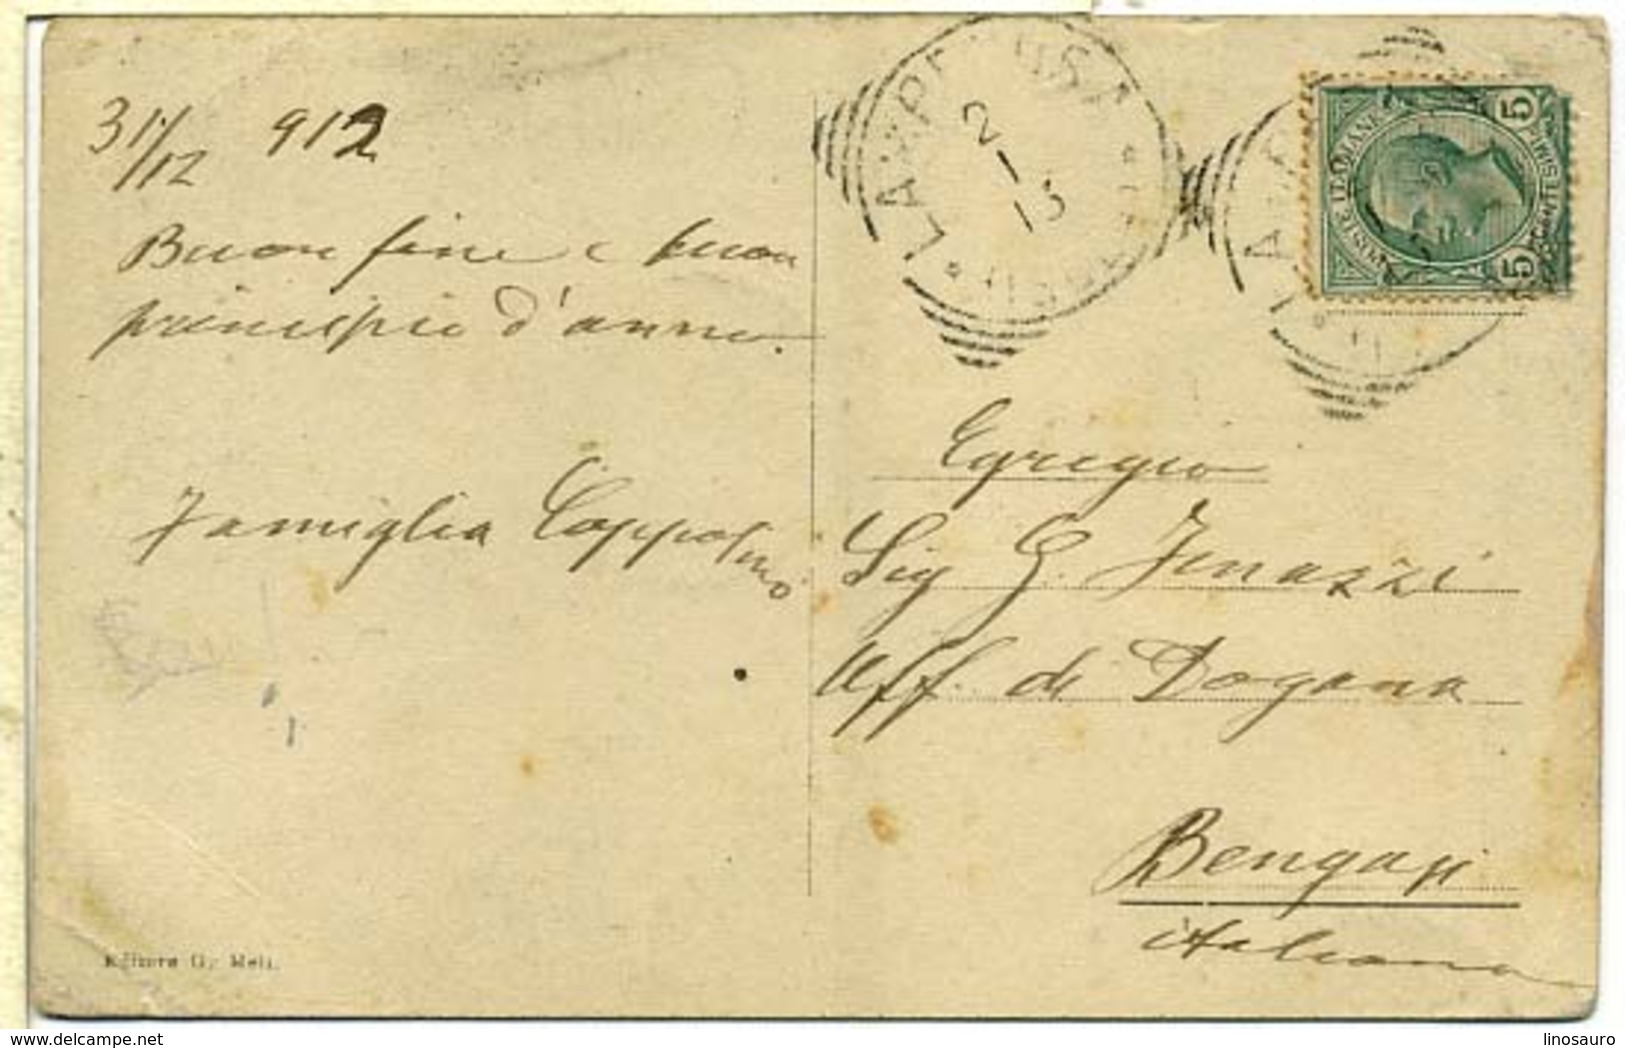 31/12 912
Buon fine e buon
principio d'anno.
Famiglia Coppolino
Editore G. Meli.
LAMPEDUSA
2 - 1 - 13
POSTE ITALIANE
5 CENTESIMI 5
Egregio
Sig G. Fenazzi
Uff. di Dogana
Bengasi
italiana
linosauro